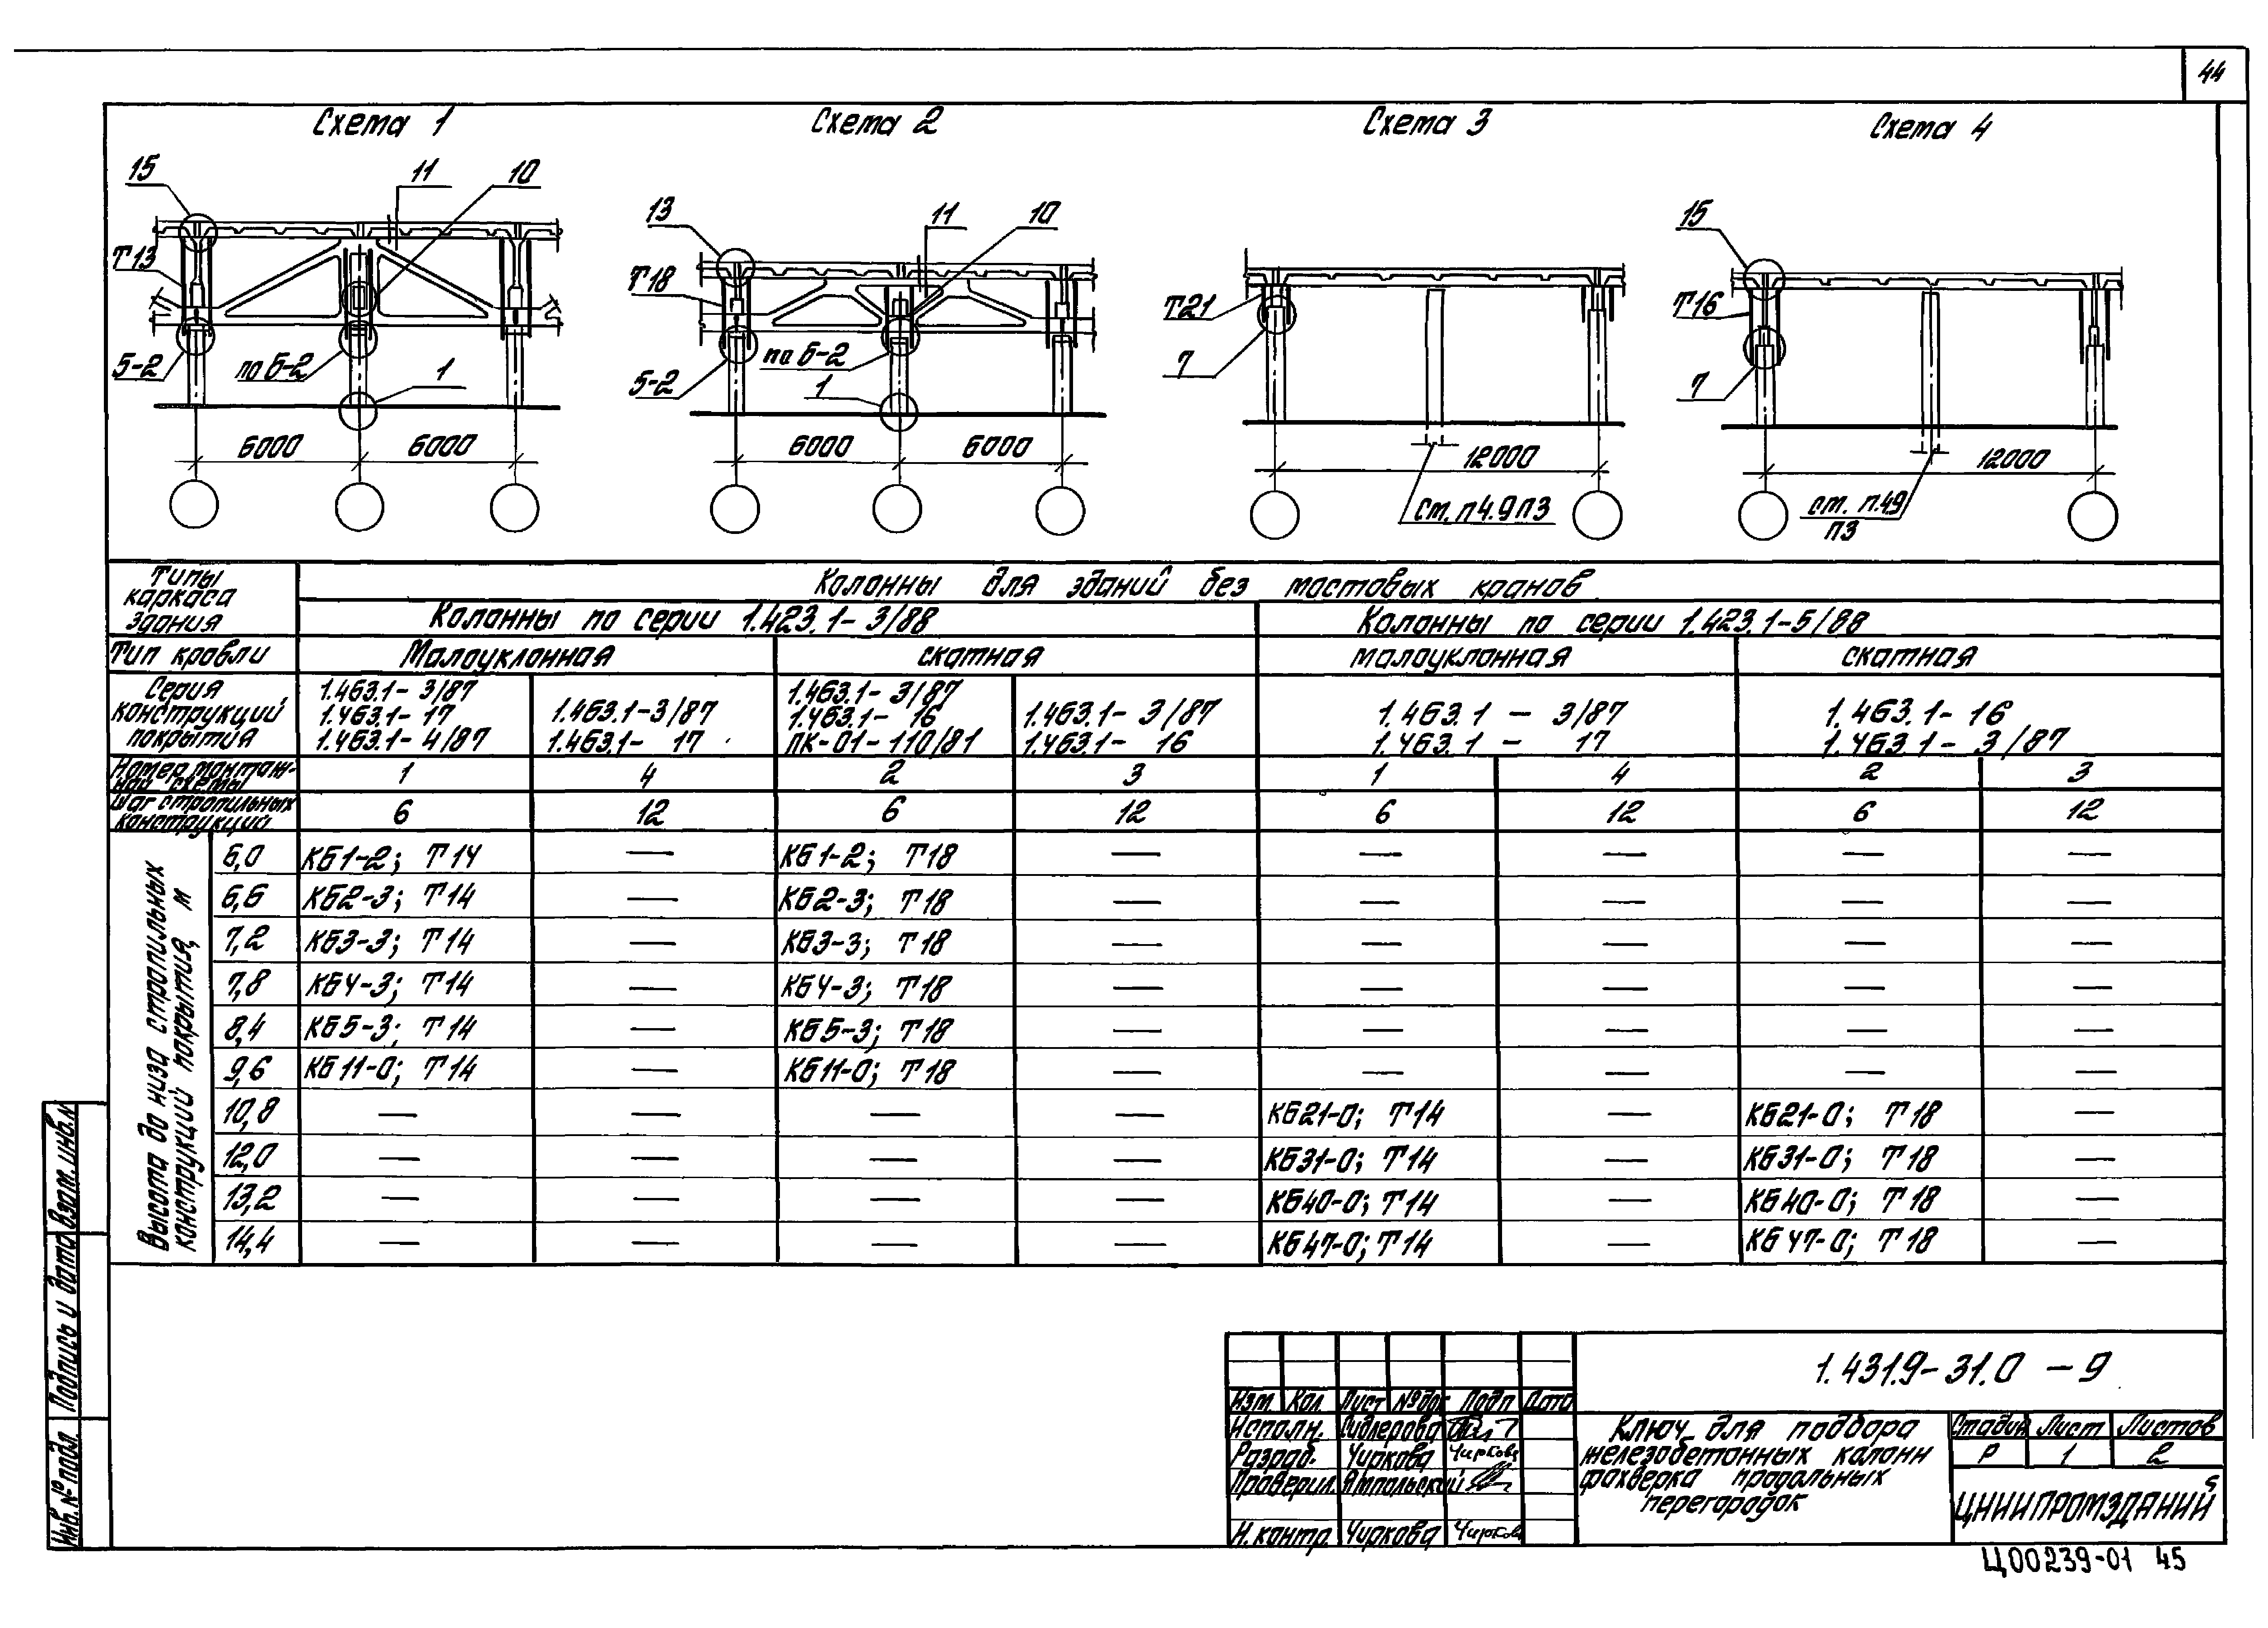 44
Схема 1 Схема 2 Схема 3 Схема 4
15 11 10 13 11 10 15
Т13 Т18 Т21 Т16
5-2 по 6-2 1 5-2 по 6-2 1 7 7
6000 6000 6000 6000 12000 12000
ст. п 4.9 ПЗ ст. п.4.9 ПЗ
Типы каркаса здания
Колонны для зданий без мостовых кранов
Колонны по серии 1.423.1-3/88 Колонны по серии 1.423.1-5/88
Тип кровли Малоуклонная скатная малоуклонная скатная
Серия конструкций покрытия
1.463.1-3/87 1.463.1-17 1.463.1-4/87
1.463.1-3/87 1.463.1-17
1.463.1-3/87 1.463.1-16 ПК-01-110/81
1.463.1-3/87 1.463.1-16
1.463.1-3/87 1.463.1-17
1.463.1-16 1.463.1-3/87
Номер монтажной схемы 1 4 2 3 1 4 2 3
Шаг стропильных конструкций 6 12 6 12 6 12 6 12
Высота до низа стропильных конструкций покрытия, м
6,0 КБ1-2; Т14 — КБ1-2; Т18 — — — — —
6,6 КБ2-3; Т14 — КБ2-3; Т18 — — — — —
7,2 КБ3-3; Т14 — КБ3-3; Т18 — — — — —
7,8 КБ4-3; Т14 — КБ4-3; Т18 — — — — —
8,4 КБ5-3; Т14 — КБ5-3; Т18 — — — — —
9,6 КБ11-0; Т14 — КБ11-0; Т18 — — — — —
10,8 — — — — КБ21-0; Т14 — КБ21-0; Т18 —
12,0 — — — — КБ31-0; Т14 — КБ31-0; Т18 —
13,2 — — — — КБ40-0; Т14 — КБ40-0; Т18 —
14,4 — — — — КБ47-0; Т14 — КБ47-0; Т18 —
Взам. инв. №
Подпись и дата
Инв. № подл.
1.431.9-31.0 - 9
Изм. Кол. Лист №док Подп Дата
Исполн. Сидлерова
Разраб. Чиркова Чиркова
Проверил. Ямпольский
Н.контр. Чиркова Чирков
Ключ для подбора
железобетонных колонн
фахверка продольных
перегородок
Стадия Лист Листов
Р 1 2
ЦНИИПРОМЗДАНИЙ
Ц00239-01 45